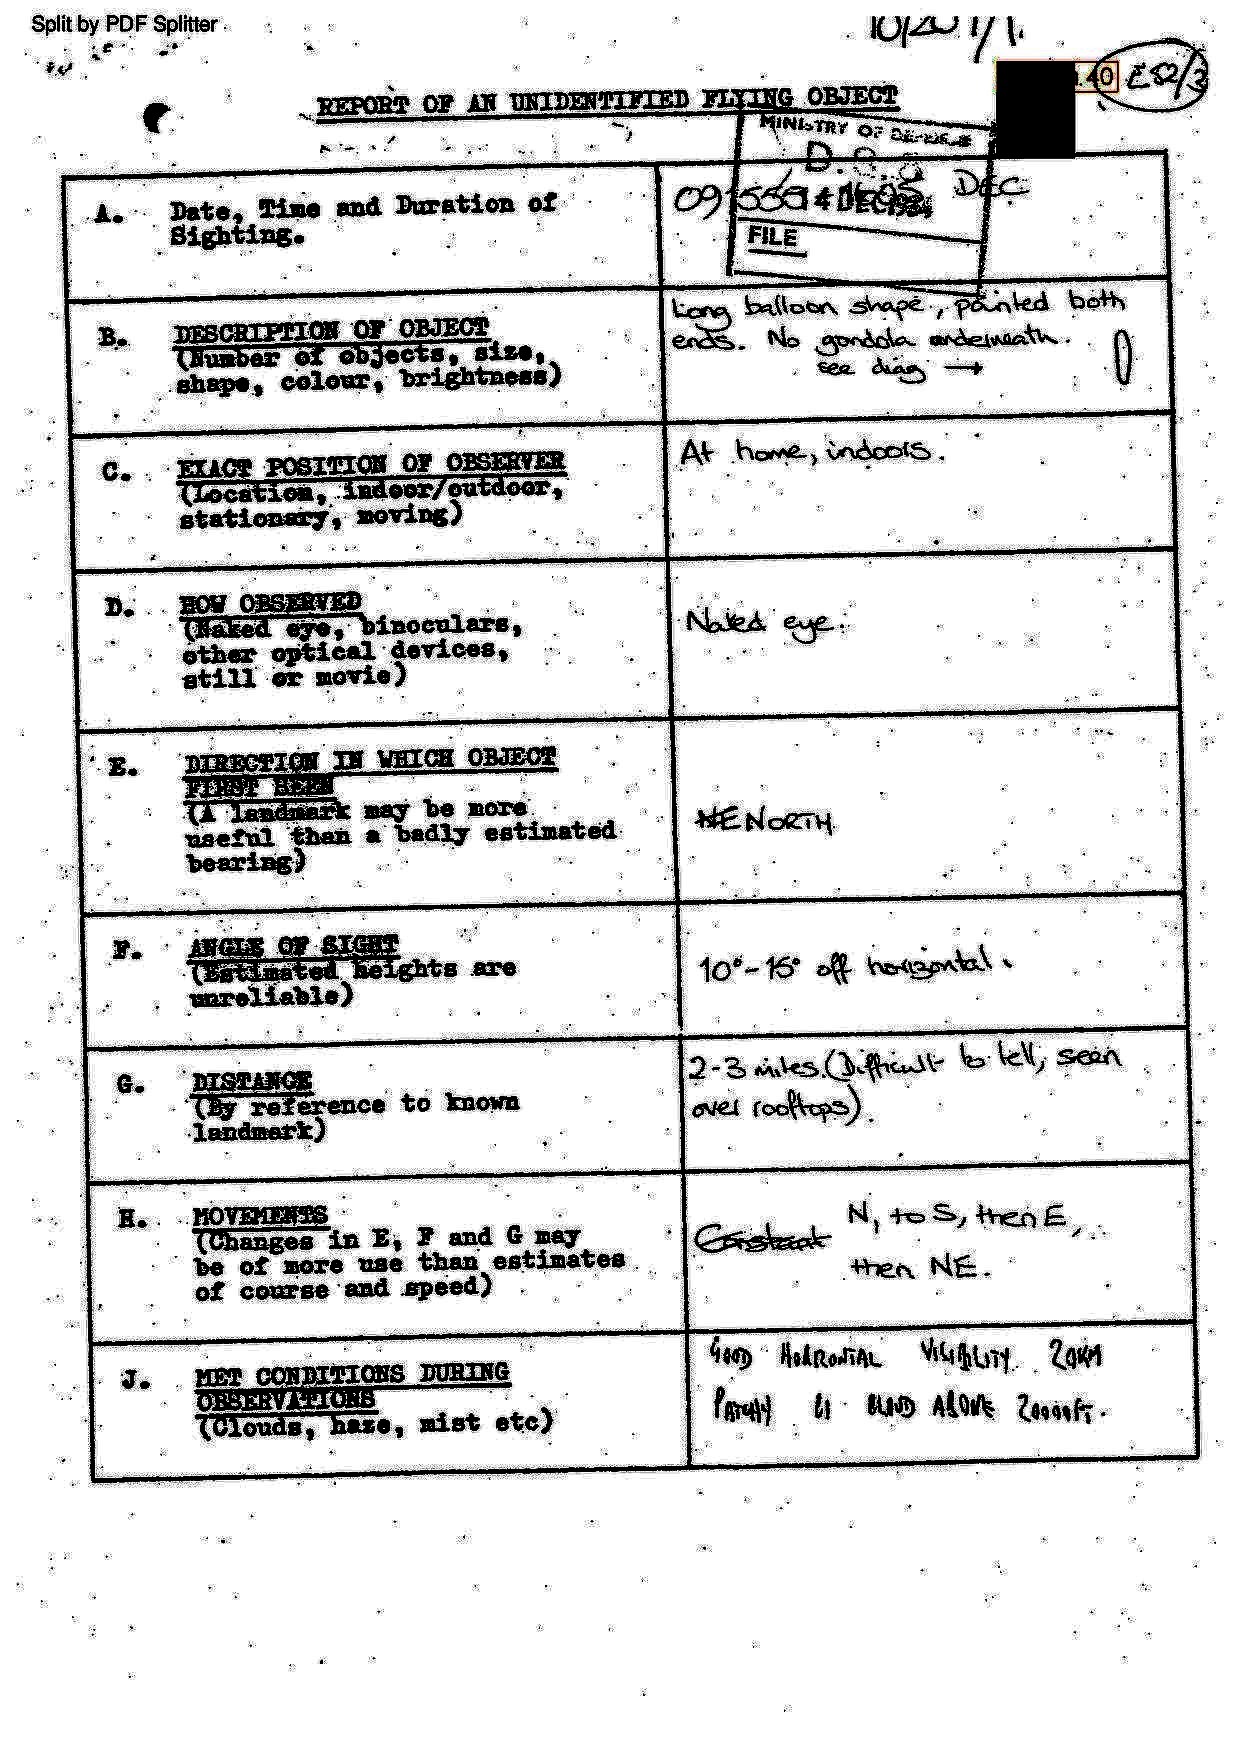 Split by PDF Splitter
.40 E52/3
REPORT OF AN UNIDENTIFIED FLYING OBJECT
MINISTRY OF DEFENCE
FILE
A. Date, Time and Duration of
Sighting.
DEC
B. DESCRIPTION OF OBJECT
(Number of objects, size,
shape, colour, brightness)
Long balloon shape, pointed both
ends. No gondola underneath.
see diag →
C. EXACT POSITION OF OBSERVER
(Location, indoor/outdoor,
stationary, moving)
At home, indoors.
D. HOW OBSERVED
(Naked eye, binoculars,
other optical devices,
still or movie)
Naked eye.
E. DIRECTION IN WHICH OBJECT
FIRST SEEN
(A landmark may be more
useful than a badly estimated
bearing)
NE NORTH
F. ANGLE OF SIGHT
(Estimated heights are
unreliable)
10°-15° off horizontal.
G. DISTANCE
(By reference to known
landmark)
2-3 miles. (Difficult to tell, seen
over rooftops).
H. MOVEMENTS
(Changes in E, F and G may
be of more use than estimates
of course and speed)
Constant N, to S, then E,
then NE.
J. MET CONDITIONS DURING
OBSERVATIONS
(Clouds, haze, mist etc)
GOOD HORRONTAL VISIBILITY 20KM
PATCHY CI CLOUD ABOVE 20000FT.